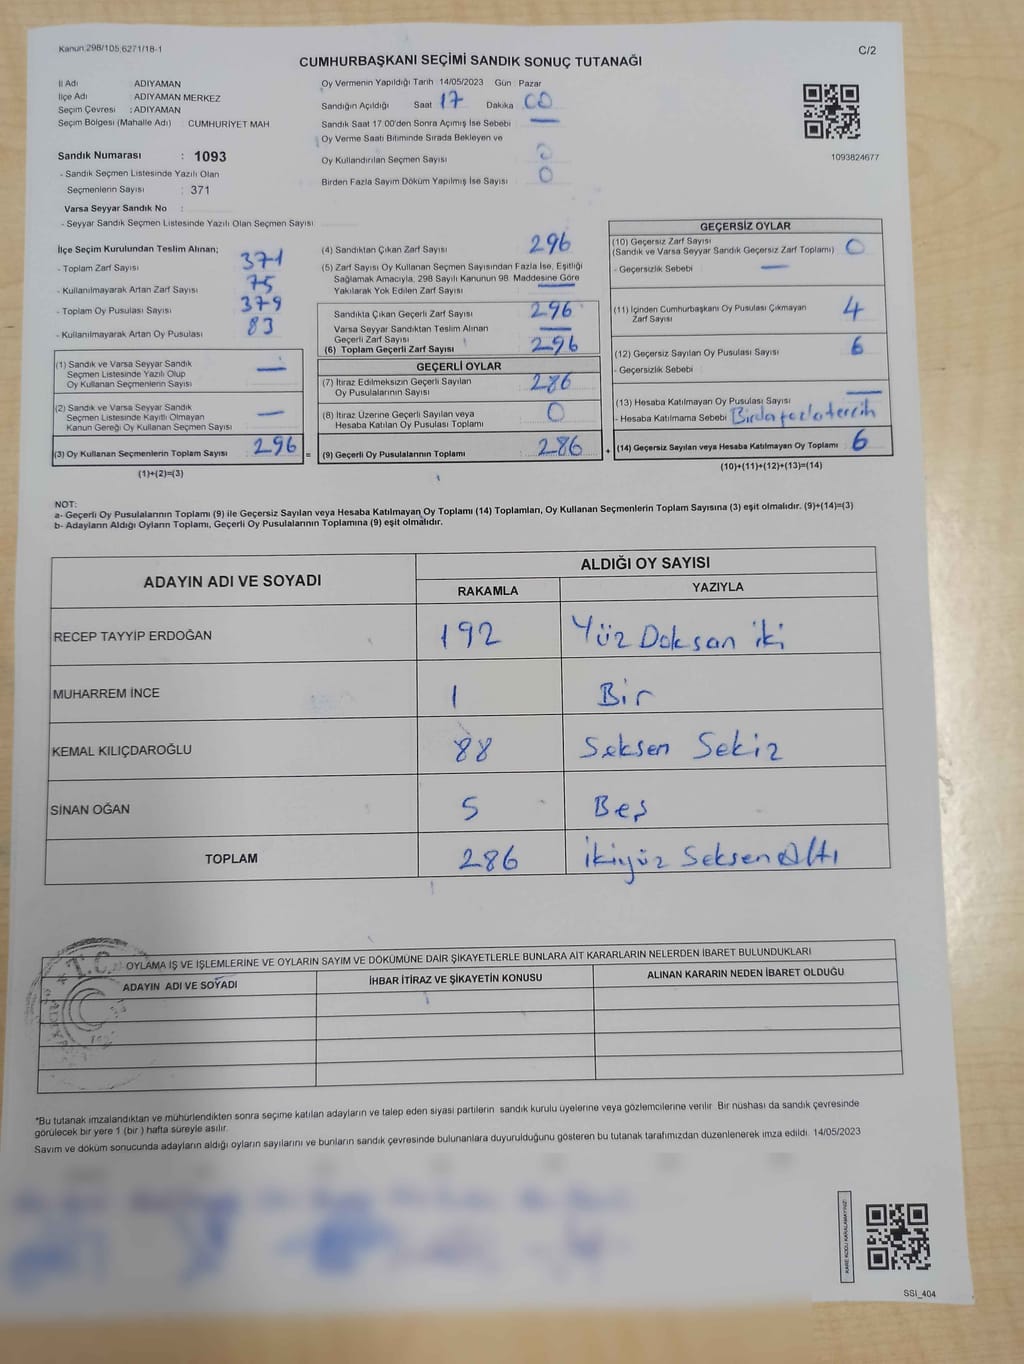 Kanun 298/105,6271/18-1
C/2
CUMHURBAŞKANI SEÇİMİ SANDIK SONUÇ TUTANAĞI
İl Adı ADIYAMAN
İlçe Adı : ADIYAMAN MERKEZ
Seçim Çevresi : ADIYAMAN
Seçim Bölgesi (Mahalle Adı) : CUMHURİYET MAH
Sandık Numarası : 1093
- Sandık Seçmen Listesinde Yazılı Olan
Seçmenlerin Sayısı : 371
Varsa Seyyar Sandık No :
- Seyyar Sandık Seçmen Listesinde Yazılı Olan Seçmen Sayısı
Oy Vermenin Yapıldığı Tarih : 14/05/2023 Gün : Pazar
Sandığın Açıldığı Saat 17 Dakika 00
Sandık Saat 17.00'den Sonra Açımış İse Sebebi : —
Oy Verme Saati Bitiminde Sırada Bekleyen ve
Oy Kullandırılan Seçmen Sayısı 0
Birden Fazla Sayım Döküm Yapılmış İse Sayısı : 0
1093824677
İlçe Seçim Kurulundan Teslim Alınan;
- Toplam Zarf Sayısı 371
- Kullanılmayarak Artan Zarf Sayısı 75
- Toplam Oy Pusulası Sayısı 379
- Kullanılmayarak Artan Oy Pusulası 83
(1) Sandık ve Varsa Seyyar Sandık
Seçmen Listesinde Yazılı Olup
Oy Kullanan Seçmenlerin Sayısı —
(2) Sandık ve Varsa Seyyar Sandık
Seçmen Listesinde Kayıtlı Olmayan
Kanun Gereği Oy Kullanan Seçmen Sayısı —
(3) Oy Kullanan Seçmenlerin Toplam Sayısı 296 =
(1)+(2)=(3)
(4) Sandıktan Çıkan Zarf Sayısı 296
(5) Zarf Sayısı Oy Kullanan Seçmen Sayısından Fazla İse, Eşitliği
Sağlamak Amacıyla, 298 Sayılı Kanunun 98. Maddesine Göre
Yakılarak Yok Edilen Zarf Sayısı —
Sandıkta Çıkan Geçerli Zarf Sayısı 296
Varsa Seyyar Sandıktan Teslim Alınan
Geçerli Zarf Sayısı —
(6) Toplam Geçerli Zarf Sayısı 296
GEÇERLİ OYLAR
(7) İtiraz Edilmeksizin Geçerli Sayılan
Oy Pusulalarının Sayısı 286
(8) İtiraz Üzerine Geçerli Sayılan veya
Hesaba Katılan Oy Pusulası Toplamı 0
(9) Geçerli Oy Pusulalarının Toplamı 286 +
GEÇERSİZ OYLAR
(10) Geçersiz Zarf Sayısı
(Sandık ve Varsa Seyyar Sandık Geçersiz Zarf Toplamı) 0
- Geçersizlik Sebebi —
(11) İçinden Cumhurbaşkanı Oy Pusulası Çıkmayan
Zarf Sayısı 4
(12) Geçersiz Sayılan Oy Pusulası Sayısı 6
- Geçersizlik Sebebi
(13) Hesaba Katılmayan Oy Pusulası Sayısı —
- Hesaba Katılmama Sebebi Birdafazlatercih
(14) Geçersiz Sayılan veya Hesaba Katılmayan Oy Toplamı 6
(10)+(11)+(12)+(13)=(14)
NOT:
a- Geçerli Oy Pusulalarının Toplamı (9) ile Geçersiz Sayılan veya Hesaba Katılmayan Oy Toplamı (14) Toplamları, Oy Kullanan Seçmenlerin Toplam Sayısına (3) eşit olmalıdır. (9)+(14)=(3)
b- Adayların Aldığı Oyların Toplamı, Geçerli Oy Pusulalarının Toplamına (9) eşit olmalıdır.
ADAYIN ADI VE SOYADI ALDIĞI OY SAYISI
RAKAMLA YAZIYLA
RECEP TAYYİP ERDOĞAN 192 Yüz Doksan iki
MUHARREM İNCE 1 Bir
KEMAL KILIÇDAROĞLU 88 Seksen Sekiz
SİNAN OĞAN 5 Beş
TOPLAM 286 ikiyüz Seksen Altı
T.C.
OYLAMA İŞ VE İŞLEMLERİNE VE OYLARIN SAYIM VE DÖKÜMÜNE DAİR ŞİKAYETLERLE BUNLARA AİT KARARLARIN NELERDEN İBARET BULUNDUKLARI
ADAYIN ADI VE SOYADI İHBAR İTİRAZ VE ŞİKAYETİN KONUSU ALINAN KARARIN NEDEN İBARET OLDUĞU
*Bu tutanak imzalandıktan ve mühürlendikten sonra seçime katılan adayların ve talep eden siyasi partilerin sandık kurulu üyelerine veya gözlemcilerine verilir. Bir nüshası da sandık çevresinde
görülecek bir yere 1 (bir ) hafta süreyle asılır.
Sayım ve döküm sonucunda adayların aldığı oyların sayılarını ve bunların sandık çevresinde bulunanlara duyurulduğunu gösteren bu tutanak tarafımızdan düzenlenerek imza edildi. 14/05/2023
KARE KODU KARALAMAYINIZ!
SSI_404